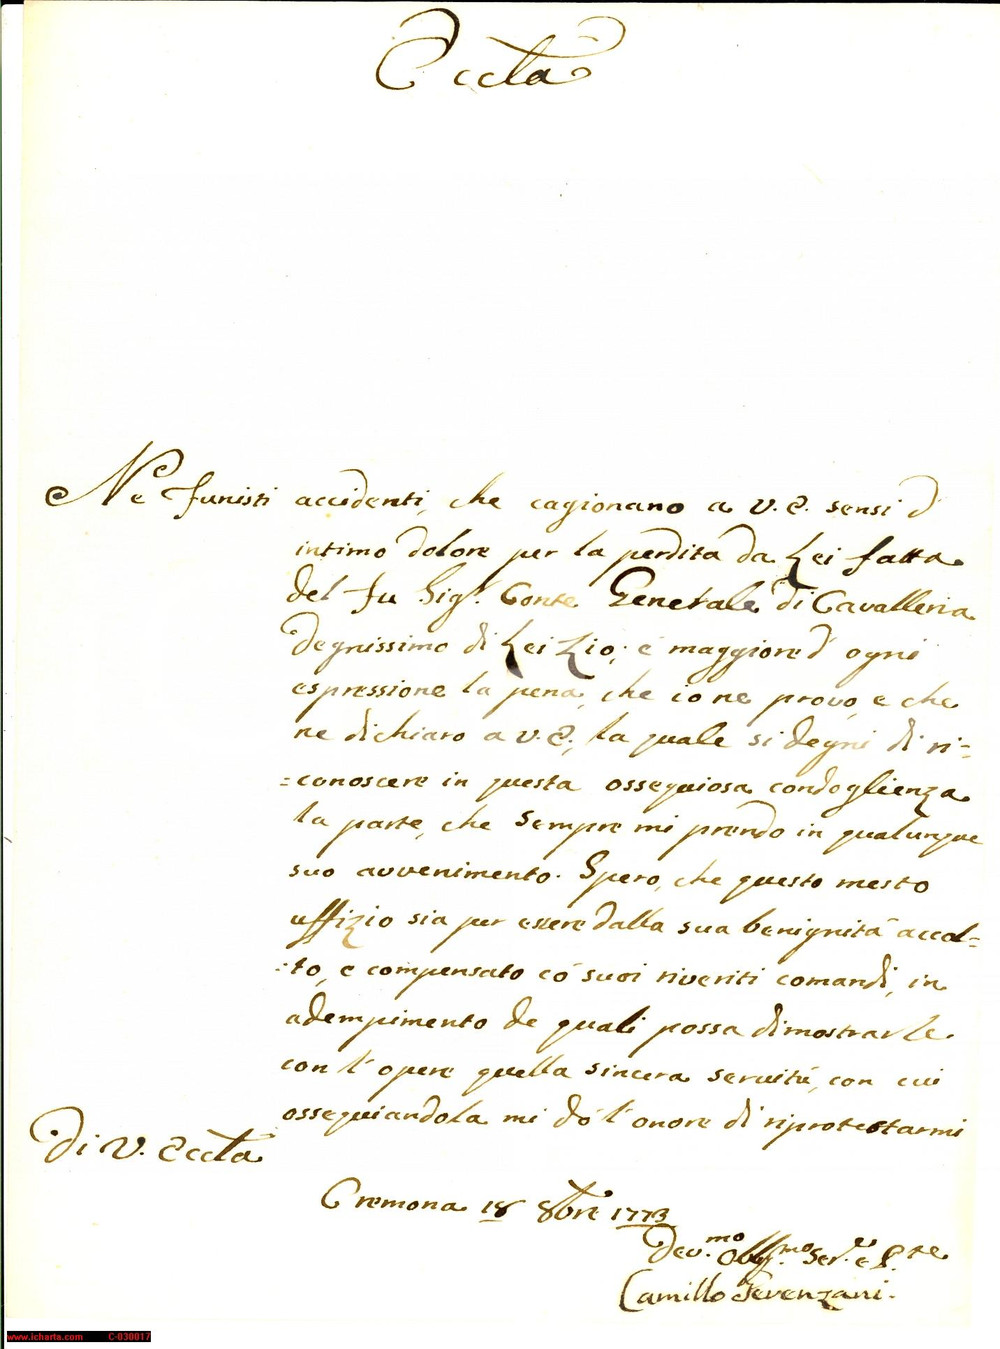 Eccza
Ne funesti accidenti, che cagionano a V. E. sensi d'
intimo dolore per la perdita da Lei fatta
del fu Sigr. Conte Generale di Cavalleria
degnissimo di Lei Zio, è maggiore d' ogni
espressione la pena, che io ne provo, e che
ne dichiaro a V. E., la quale si degni di ri=
=conoscere in questa ossequiosa condoglienza
la parte, che sempre mi prendo in qualunque
suo avvenimento. Spero, che questo mesto
uffizio sia per essere dalla sua benignità accol=
=to, e compensato có suoi riveriti comandi, in
adempimento de quali possa dimostrarle
con l' opere quella sincera servitù, con cui
ossequiandola mi dó l' onore di riprotestarmi
Di V. Eccza
Cremona 18 8bre 1773
Dev.mo Obbl.mo Ser.e e S.re
Camillo
www.icharta.com C-030017